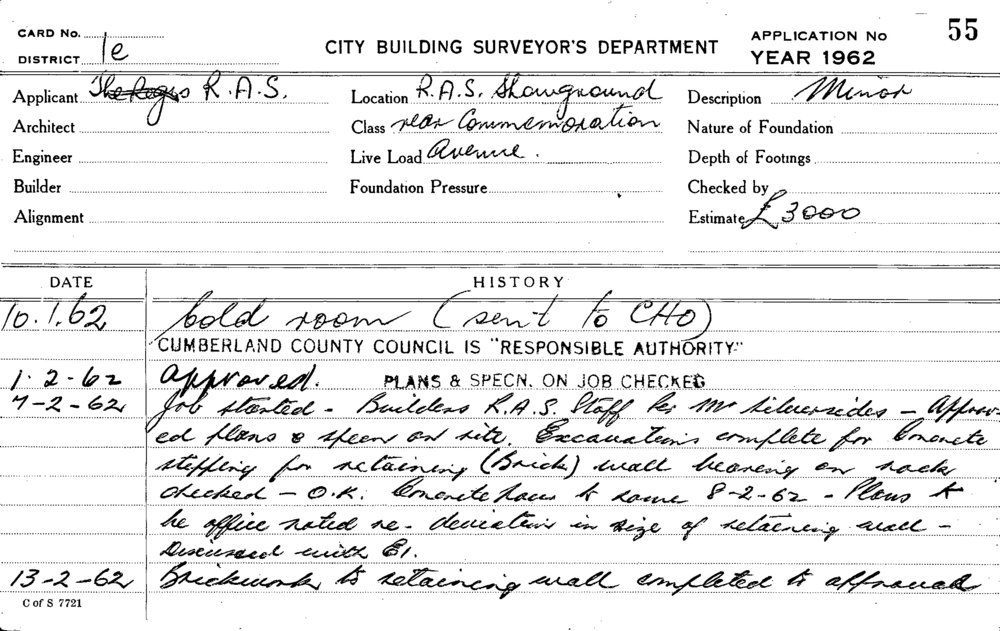 CARD No.
DISTRICT 1e
CITY BUILDING SURVEYOR'S DEPARTMENT
APPLICATION No 55
YEAR 1962
Applicant R.A.S.
Location R.A.S. Showground
Description Minor
Architect
Class near Commemoration
Nature of Foundation
Engineer
Live Load Avenue.
Depth of Footings
Builder
Foundation Pressure
Checked by
Alignment
Estimate £3000
DATE HISTORY
10.1.62 Cold room (sent to CHO)
CUMBERLAND COUNTY COUNCIL IS "RESPONSIBLE AUTHORITY"
1-2-62 Approved. PLANS & SPECN. ON JOB CHECKED
7-2-62 Job started - Builders R.A.S. Staff per Mr Silversides - Approv-
ed plans & specn on site. Excavations complete for Concrete
stepping for retaining (Brick) wall bearing on rock
checked - O.K. Concrete pour to same 8-2-62 - Plans to
be office noted re- deviation in size of retaining wall -
Discussed with
13-2-62 Brickwork to retaining wall completed to approval
C of S 7721